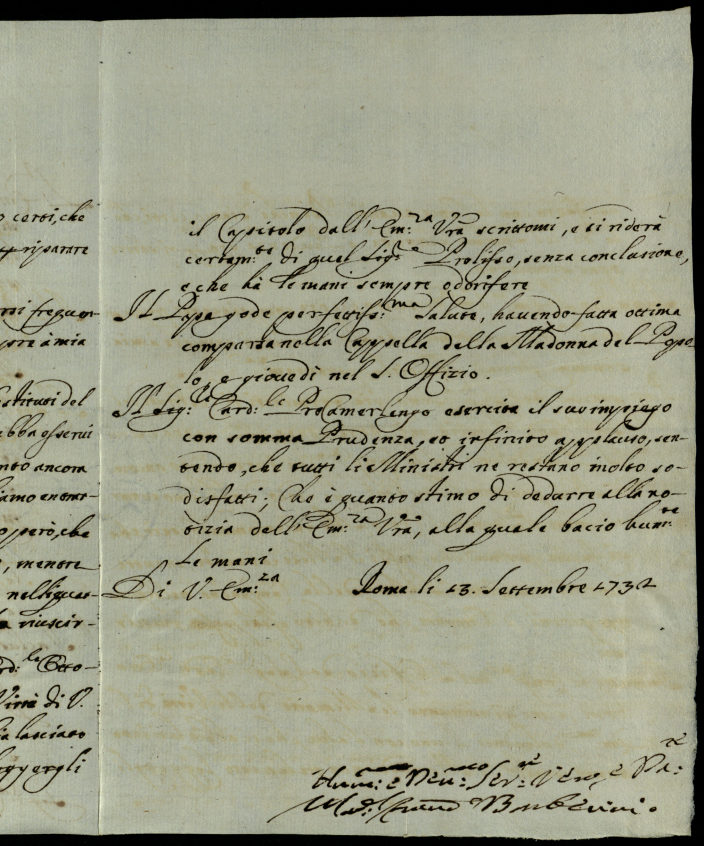 o certi, che
riparare
rsi frequen-
pre à mia
stituti del
ebba osservi
nto ancora
iamo entrar-
o però, che
, mentre
nelli quar-
riuscir-
rd: le Otto-
Virtù di V.
ia lasciato
ergli
il Capitolo dall' Em: za Vra scrittomi, e si riderà
certam: te di quel Sig: e Prolisso, senza conclusione,
e che hà le mani sempre odorifere
Il Papa gode perfettiss: ma Salute, havendo fatta ottima
comparsa nella Cappella della Madonna del Popo-
lo, e giovedì nel S. Offizio.
Il Sig: Card: le ProCamerlengo esercita il suo impiego
con somma Prudenza, et infinito applauso, sen-
tendo, che tutti li Ministri ne restano molto so-
disfatti; Che è quanto stimo di dedurre alla no-
tizia dell' Em: za Vra, alla quale bacio hum: te
Le mani
Di V. Em: za Roma li 13. Settembre 1732
Hum: e Dev: mo Ser: re Vero, e